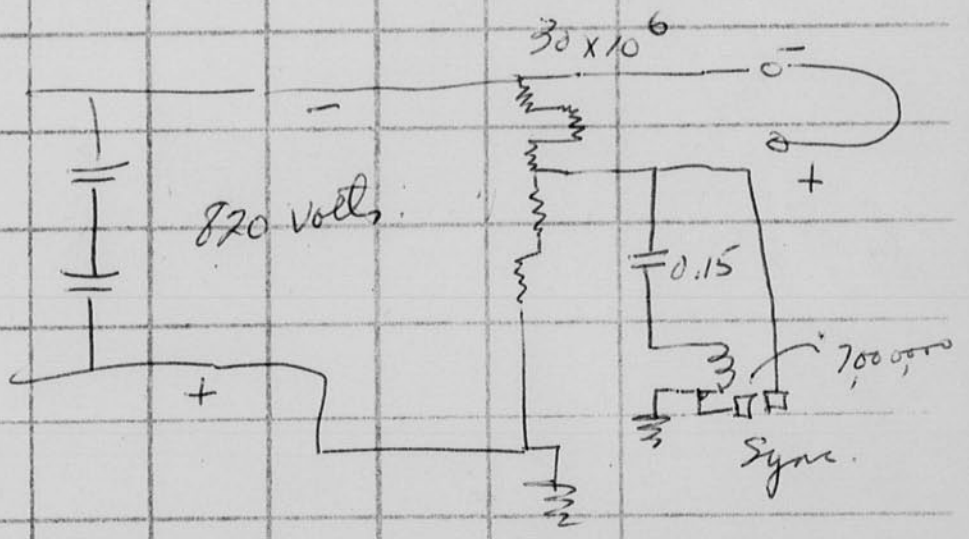 30 x 10⁶
−
−
820 volts.
+
0.15
+
7,000,000
Sync.